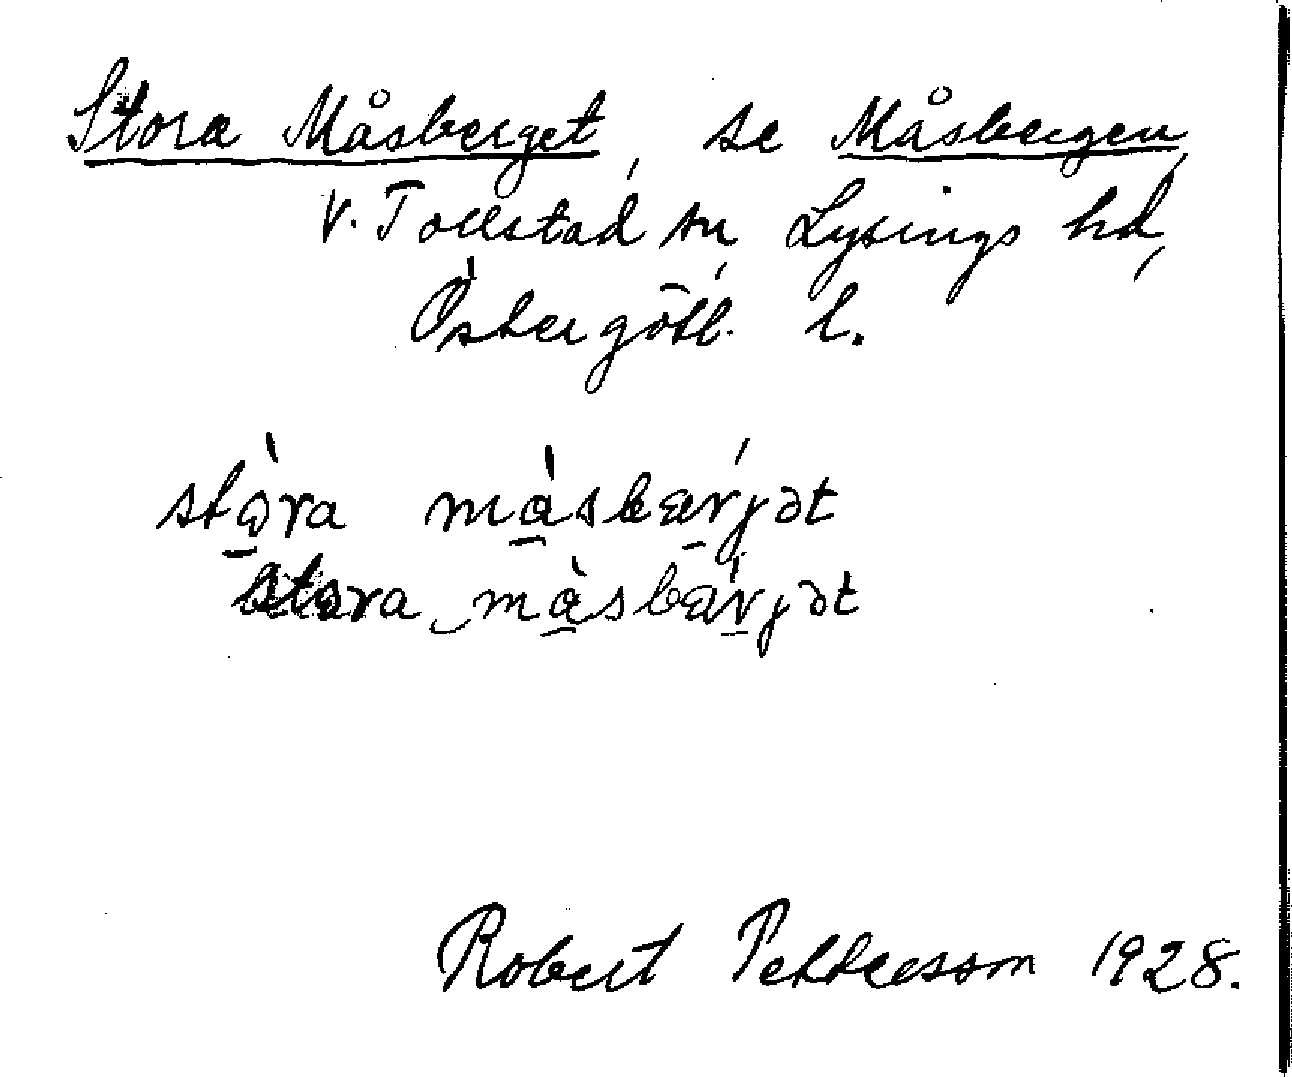 Stora Måsberget, se Måsbergen,
V. Tollstad sn, Lysings hd,
Östergötl. l.
stọ̀ra mạ̀sbærjət
stora mạ̀sbærjət
Robert Pettersson 1928.